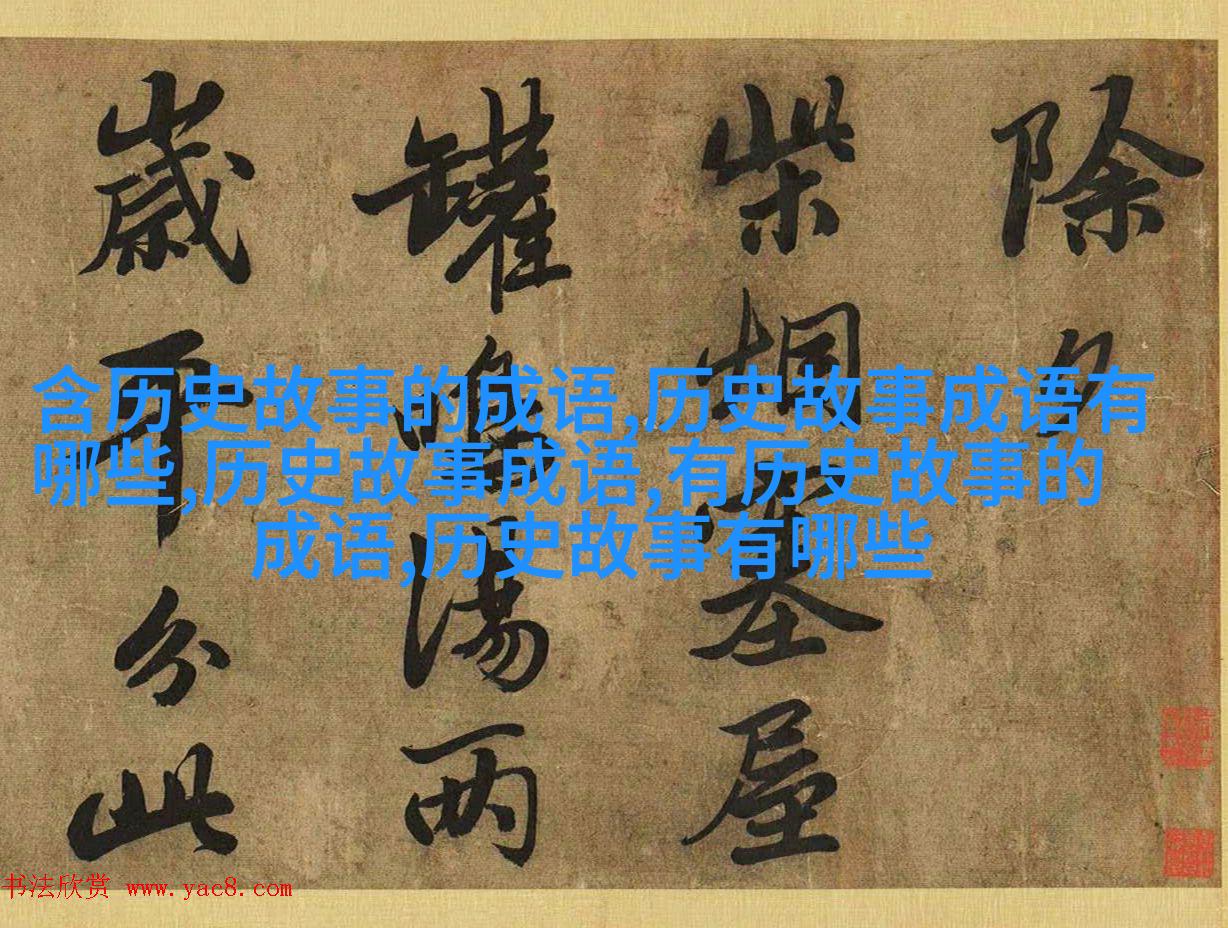 除夕
柴屋
罐鳴湯兩
歲耳分此
含历史故事的成语,历史故事成语有
哪些,历史故事成语,有历史故事的
成语,历史故事有哪些
书法欣赏 www.yac8.com